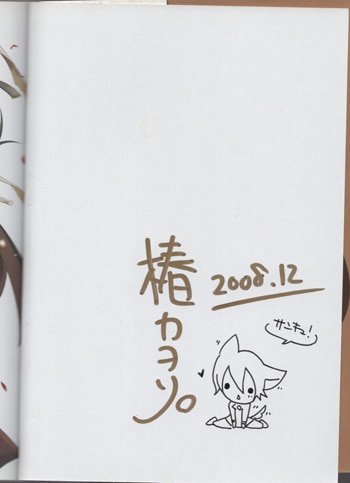 椿カヲリ。
2008.12
サンキュ!